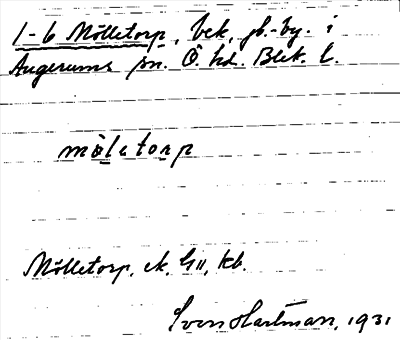 1-6 Mölletorp, bek, jb.-by. i
Augerums sn. Ö. hd. Blek. l.
mòletorp
Mölletorp, ek. G11, kb.
Sven Hartman, 1931